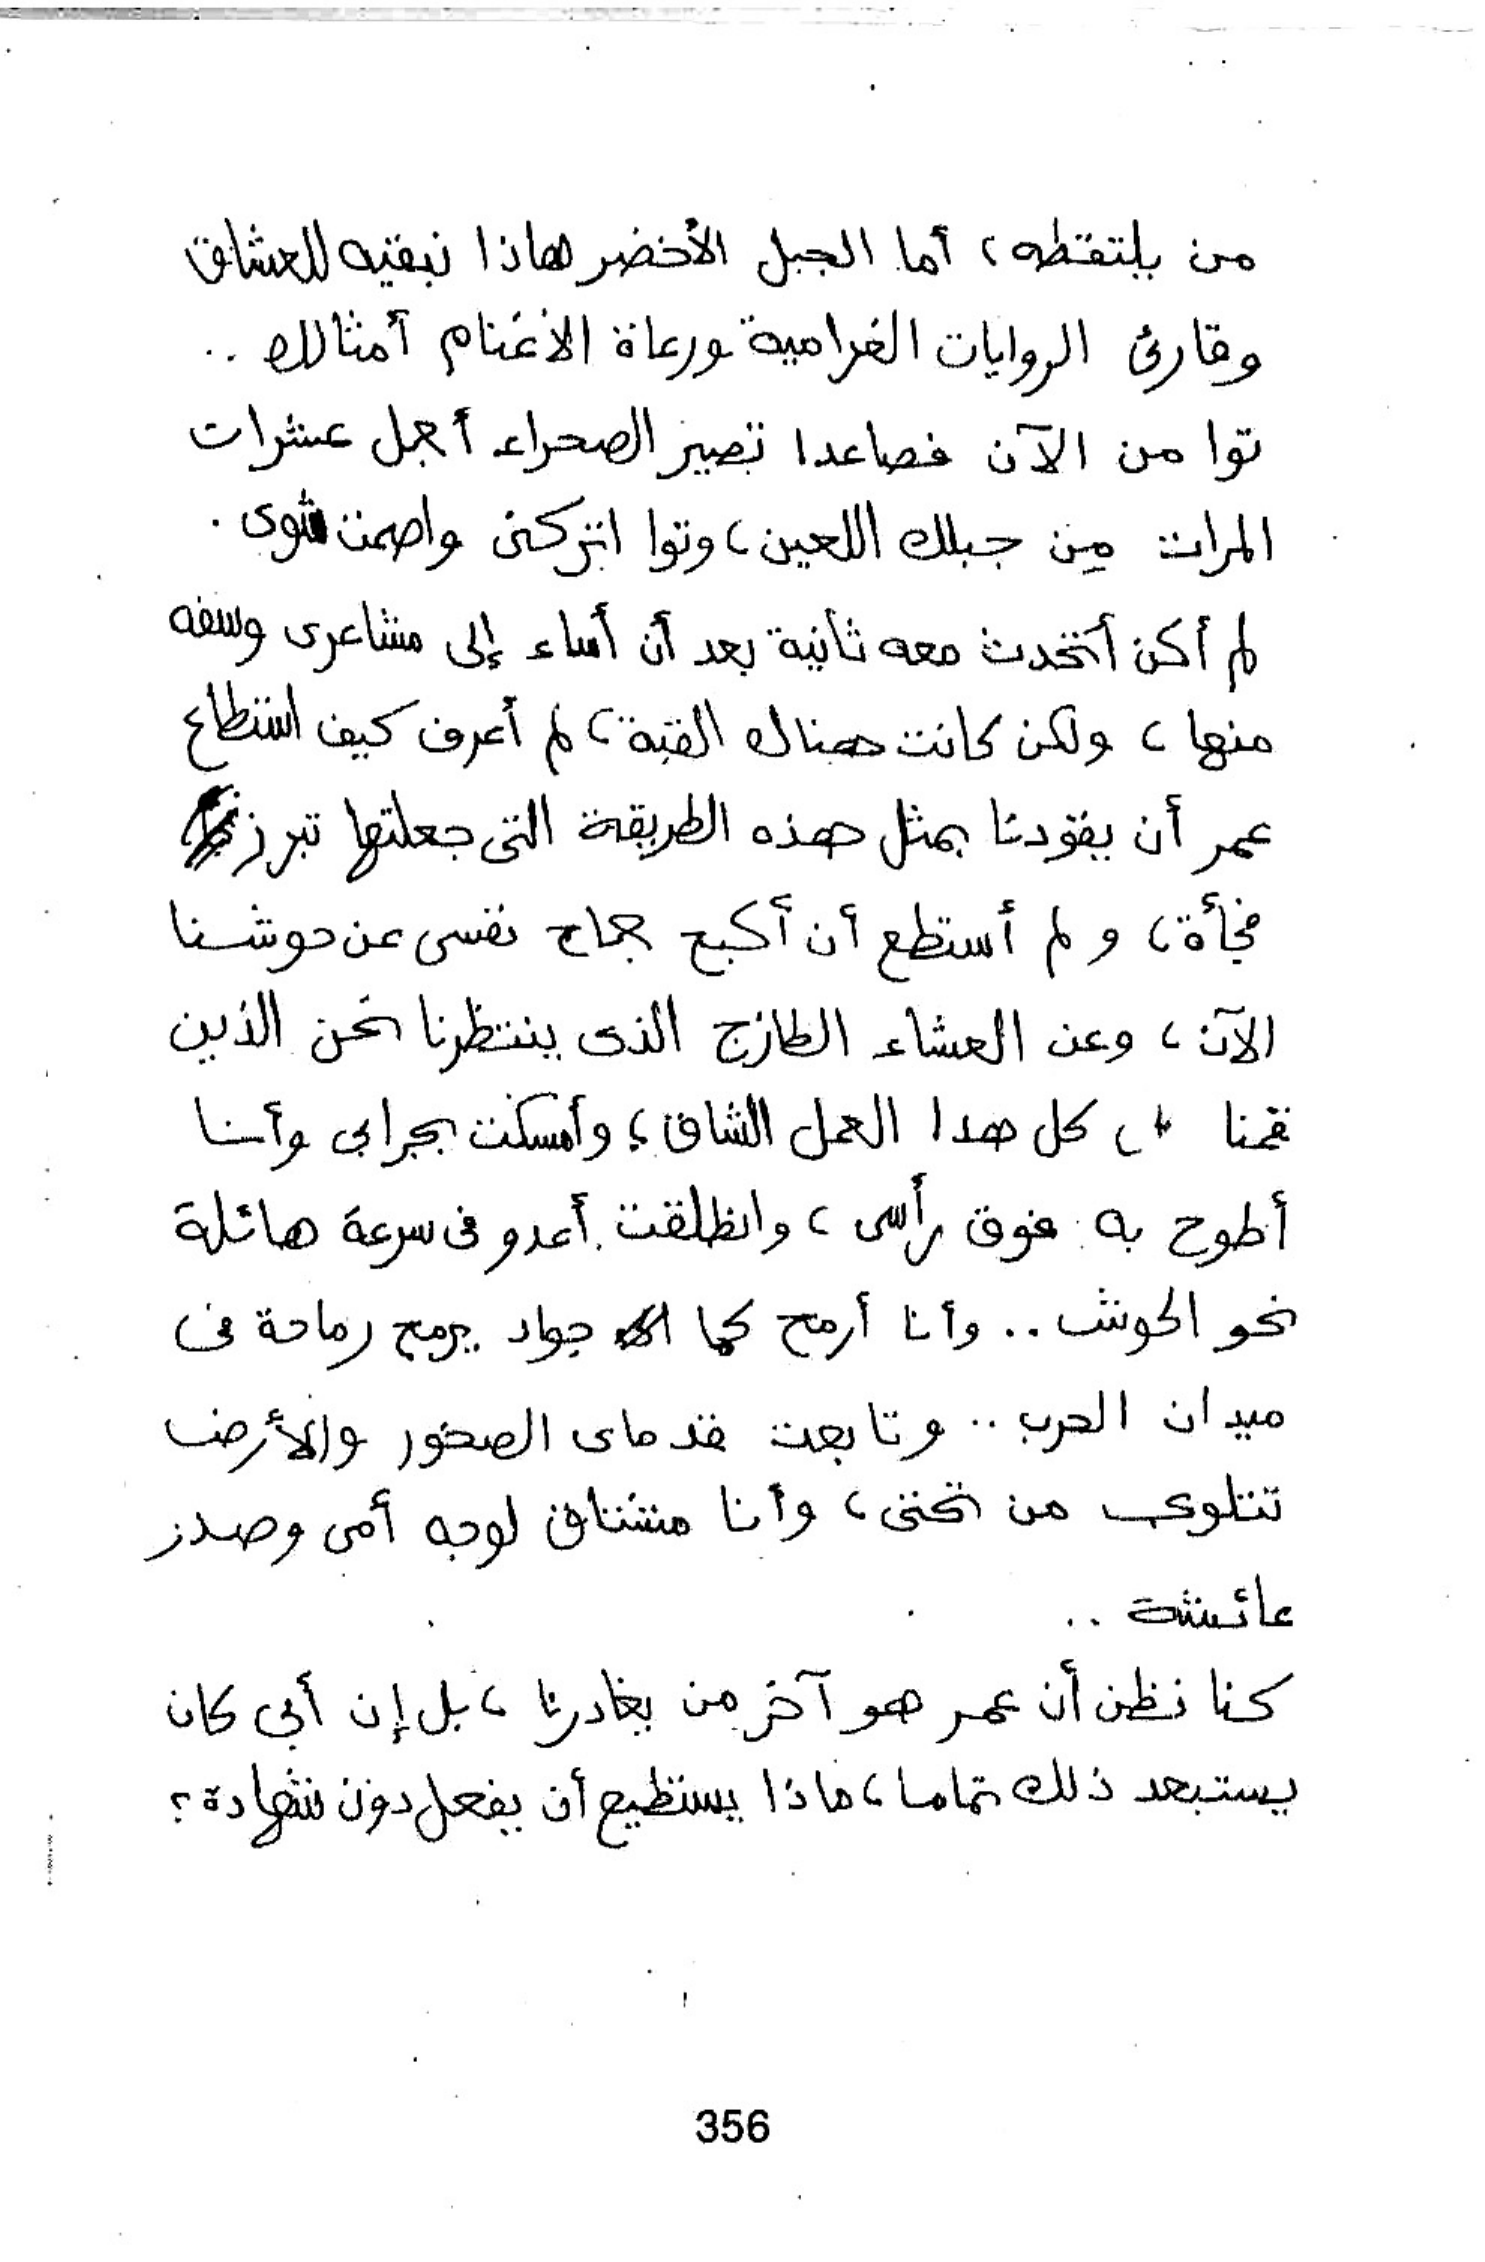 من يلتقطه ، أما الجبل الأخضر هاذا نبقيه للعشاق
وقارئ الروايات الغرامية ورعاة الأغنام أمثالك ..
توا من الآن فصاعدا تصير الصحراء أجمل عشرات
المرات من جبلك اللعين ، وتوا اتركنى واصمت شوى .
لم أكن أتحدث معه ثانية بعد أن أساء إلى مشاعرى وسفه
منها ، ولكن كانت هناك القبة ، لم أعرف كيف استطاع
عمر أن يقودنا بمثل هذه الطريقة التى جعلتها تبرز
فجأة ، و لم أستطع أن أكبح جماح نفسى عن حوشنا
الآن ، وعن العشاء الطازج الذى ينتظرنا نحن الذين
قمنا بـ كل هدا العمل الشاق ؛ وأمسكت بجرابى وأنا
أطوح به فوق رأسى ، وانطلقت أعدو فى سرعة هائلة
نحو الحوش .. وأنا أرمح كما جواد يرمح رماحة فى
ميدان الحرب .. وتابعت قدماى الصخور والأرض
تتلوى من تحتى ، وأنا مشتاق لوجه أمى وصدر
عائشة ..
كنا نظن أن عمر هو آخر من يغادرنا ، بل إن أبى كان
يستبعد ذلك تماما ، ماذا يستطيع أن يفعل دون شهادة ؟
356